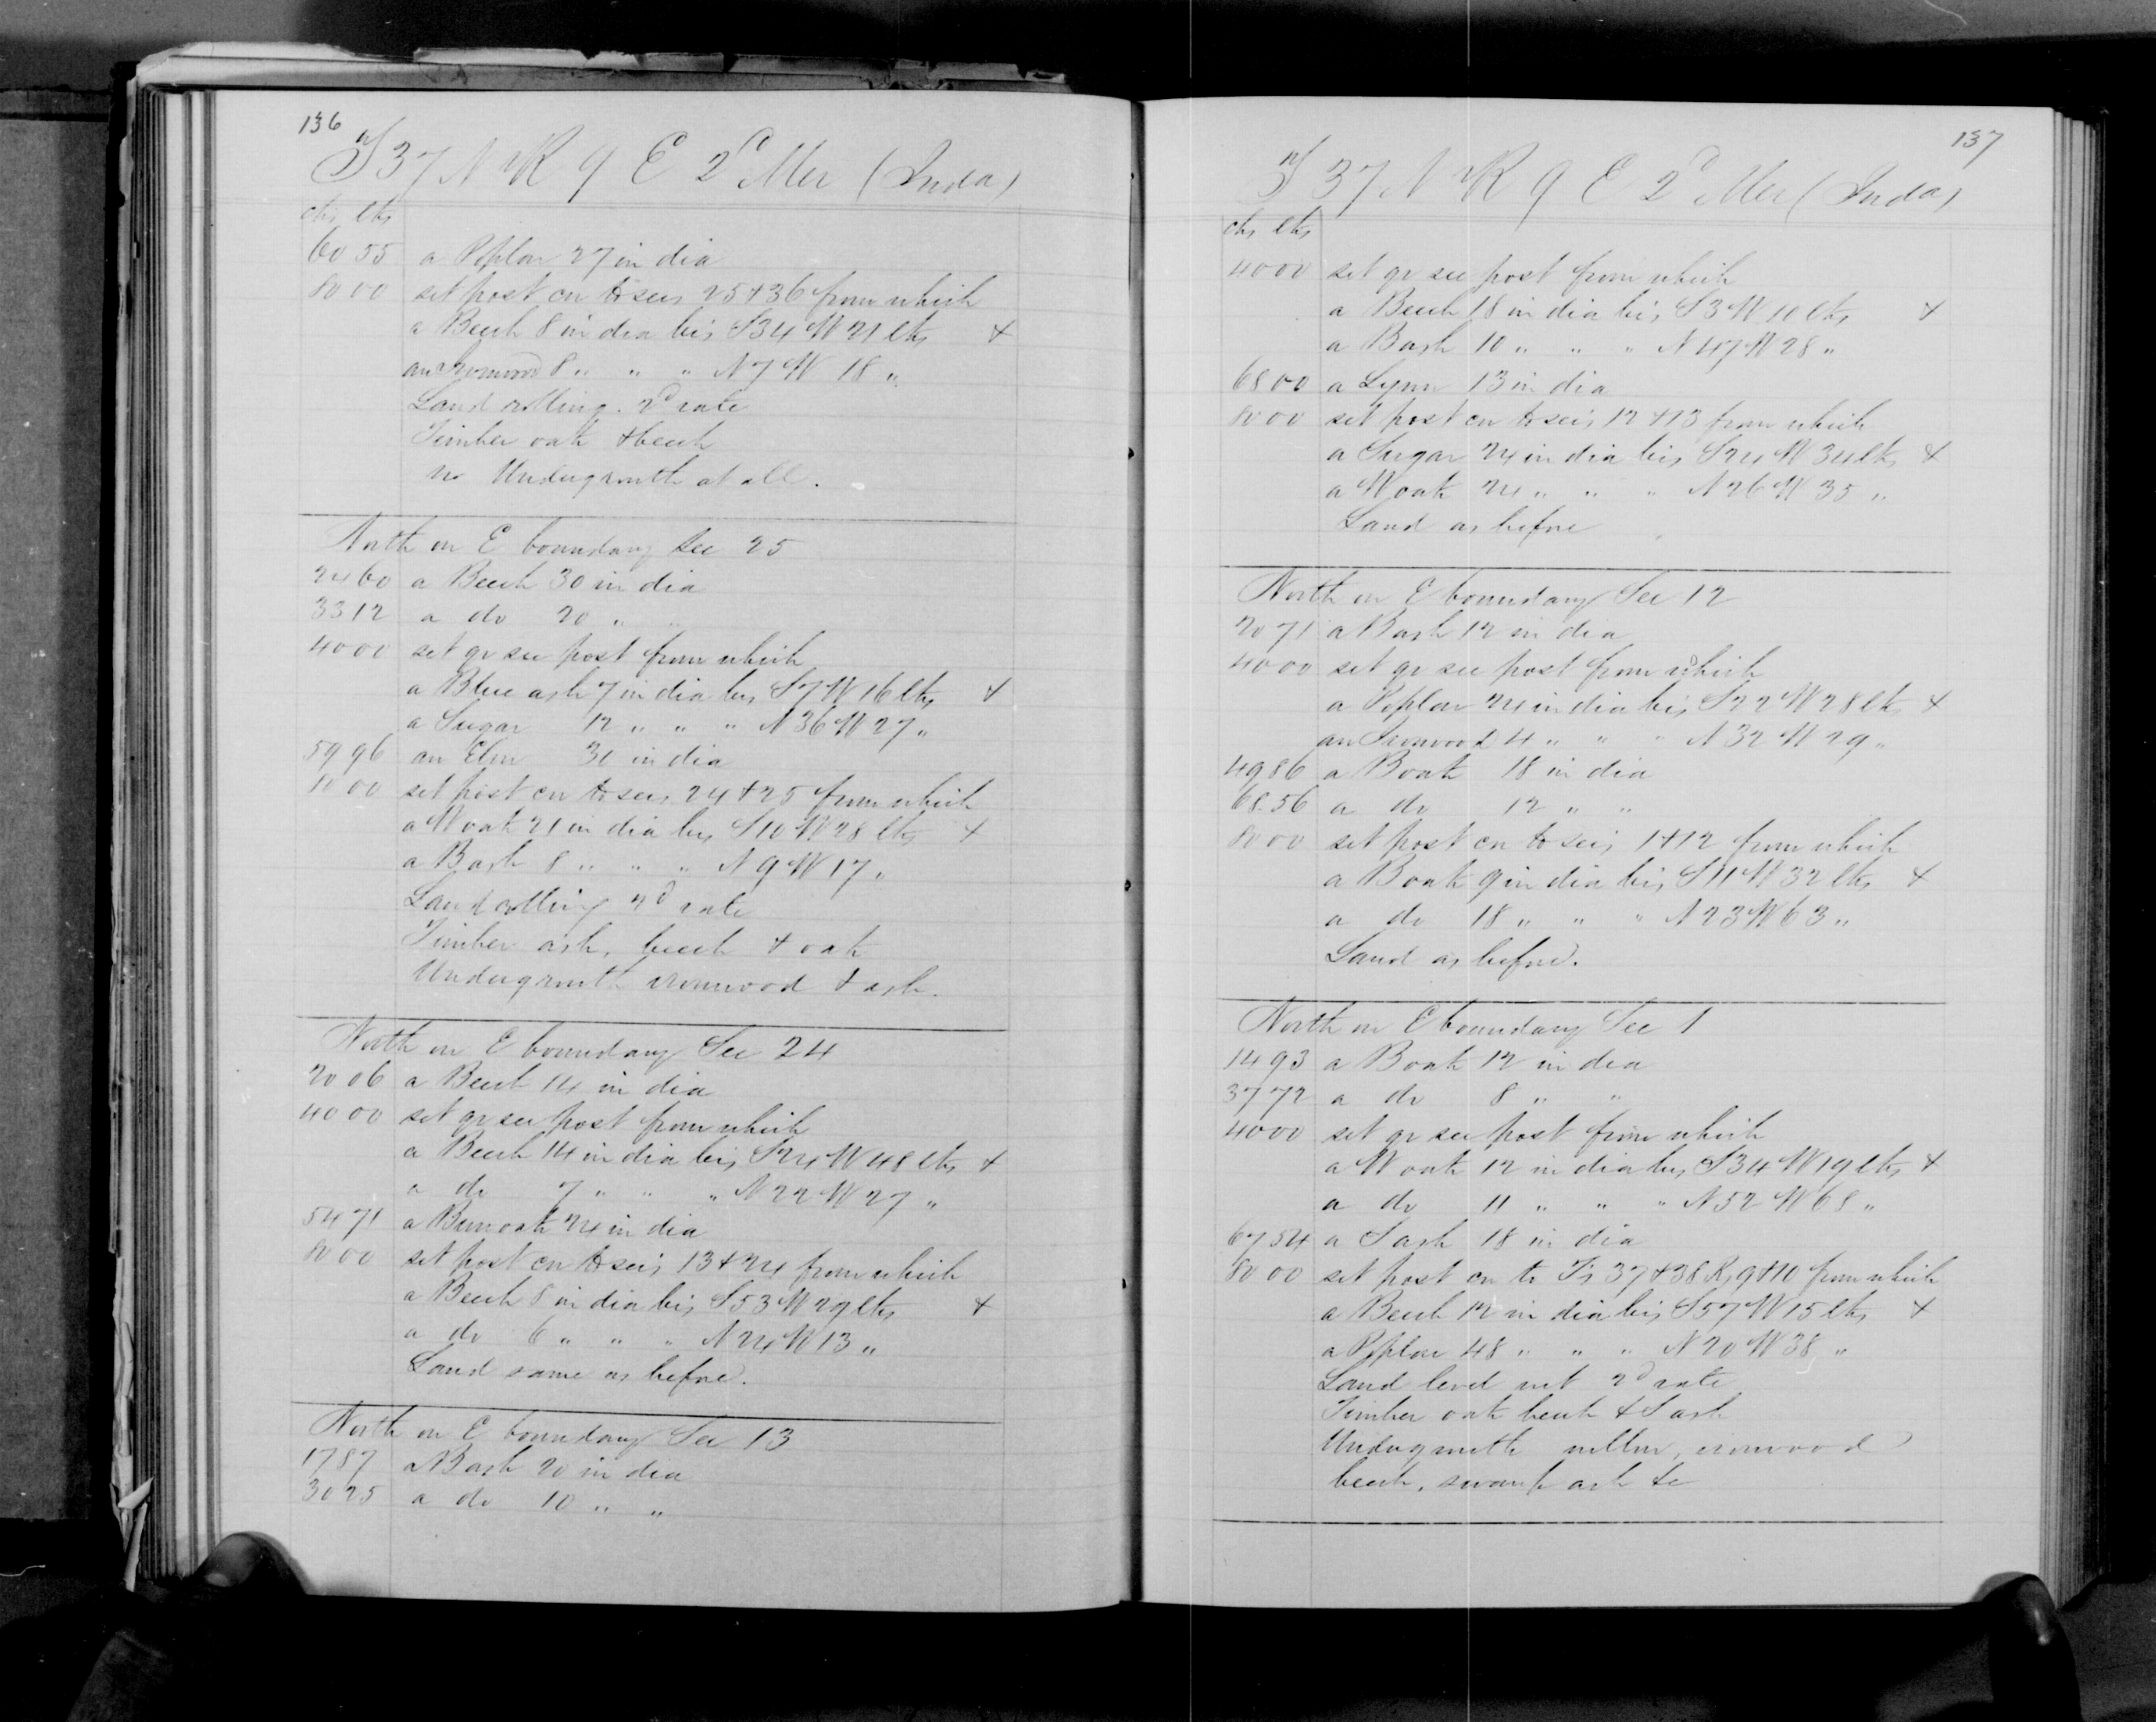 136
T 37 N R 9 E 2d Mer (Inda)
chs lks
60 55 a Poplar 27 in dia
80 00 set post cor to secs 25 + 36 from which
a Beech 8 in dia brs S 34 W 21 lks +
an Ironwood 8 " " " N 7 W 18 "
Land rolling. 2d rate
Timber oak + beech
no Undergrowth at all.
North on E boundary Sec 25
24 60 a Beech 30 in dia
33 12 a do 20 " "
40 00 set qr sec post from which
a Blue ash 7 in dia brs S 7 W 16 lks +
a Sugar 12 " " " N 36 W 27 "
59 96 an Elm 30 in dia
80 00 set post cor to secs 24 + 25 from which
a W oak 21 in dia brs S 10 W 28 lks +
a B ash 8 " " " N 9 W 17 "
Land rolling 2d rate
Timber ash, beech + oak
Undergrowth ironwood + ash.
North on E boundary Sec 24
20 06 a Beech 14 in dia
40 00 set qr sec post from which
a Beech 14 in dia brs S 24 W 48 lks +
a do 7 " " " N 22 W 27 "
54 71 a Bur oak 24 in dia
80 00 set post cor to secs 13 + 24 from which
a Beech 8 in dia brs S 53 W 29 lks +
a do 6 " " " N 24 W 13 "
Land same as before.
North on E boundary Sec 13
17 87 a B ash 20 in dia
30 25 a do 10 " "
137
T 37 N R 9 E 2d Mer (Inda)
chs lks
40 00 set qr sec post from which
a Beech 18 in dia brs S 3 W 10 lks +
a B ash 10 " " " N 47 W 28 "
68 00 a Lynn 13 in dia
80 00 set post cor to secs 12 + 13 from which
a Sugar 24 in dia brs S 24 W 34 lks +
a W oak 24 " " " N 26 W 35 "
Land as before
North on E boundary Sec 12
20 71 a B ash 12 in dia
40 00 set qr sec post from which
a Poplar 24 in dia brs S 22 W 28 lks +
an Ironwood 4 " " " N 32 W 29 "
49 86 a B oak 18 in dia
68 56 a do 12 " "
80 00 set post cor to secs 1 + 12 from which
a B oak 9 in dia brs S 11 W 32 lks +
a do 18 " " " N 23 W 63 "
Land as before.
North on E boundary Sec 1
14 93 a B oak 12 in dia
37 72 a do 8 " "
40 00 set qr sec post from which
a W oak 12 in dia brs S 34 W 19 lks +
a do 11 " " " N 52 W 68 "
67 54 a S ash 18 in dia
80 00 set post cor to Ts 37 + 38 Rs 9 + 10 from which
a Beech 12 in dia brs S 57 W 15 lks +
a Poplar 48 " " " N 20 W 38 "
Land level wet 2d rate
Timber oak beech + S ash
Undergrowth ironwood
beech, swamp ash &c